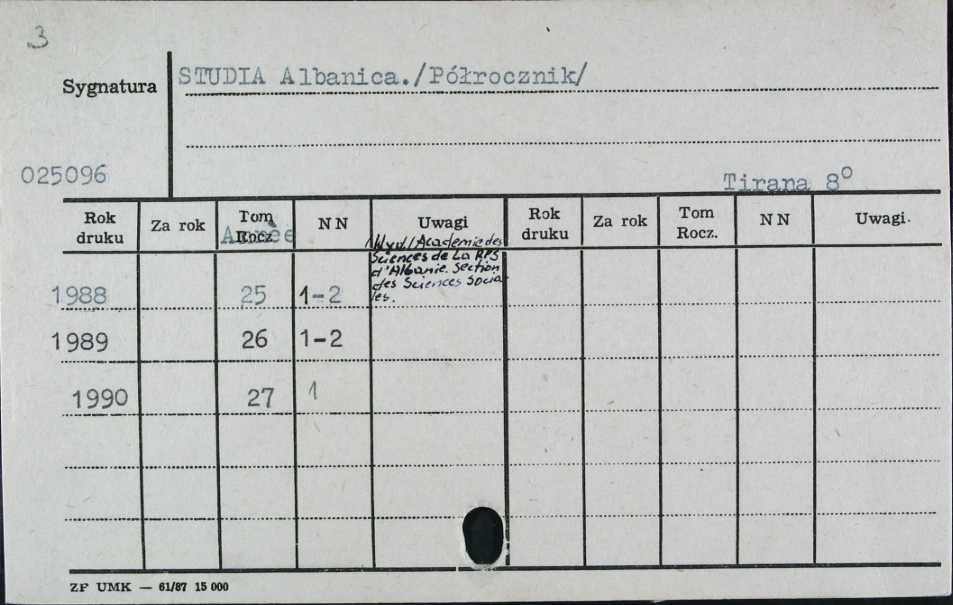 3
Sygnatura
STUDIA Albanica./Półrocznik/
025096
Tirana 8°
Rok druku
Za rok
Tom Rocz.
Année
NN
Uwagi
Rok druku
Za rok
Tom Rocz.
NN
Uwagi.
/Wyd./Academie des
Sciences de La RPS
d'Albanie. Section
des Sciences Socia
les.
1988 25 1-2
1989 26 1-2
1990 27 1
ZF UMK — 61/87 15 000